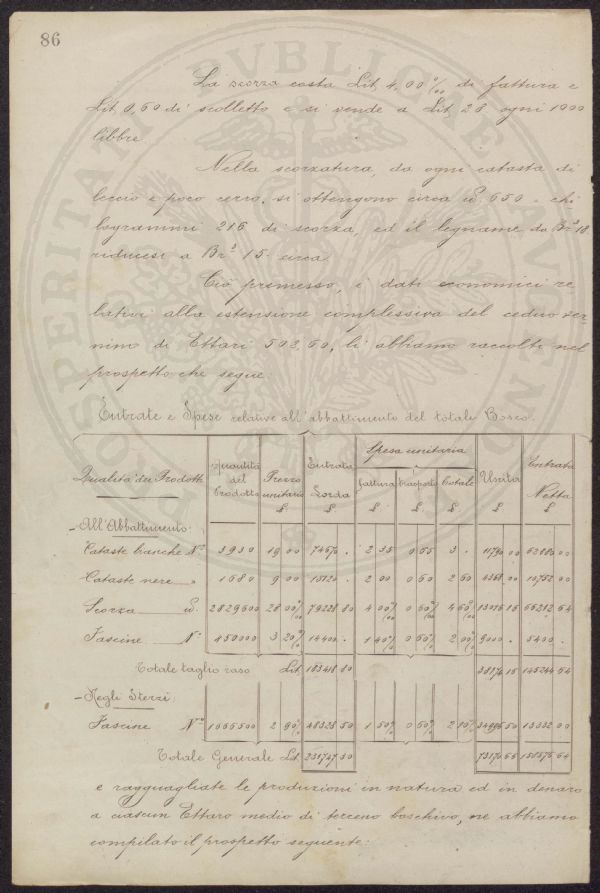 86
La scorza costa Lit. 4,00 % di fattura e
Lit. 0,60 di scolletto e si vende a Lit. 28 ogni 1000
libbre.
Nella scorzatura, da ogni catasta di
leccio e poco cerro, si ottengono circa 650 = chi
logrammi 216 di scorza, ed il legname da Br.ª 18
riducesi a Br.ª 15 circa.
Ciò premesso, i dati economici re
lativi alla estensione complessiva del ceduo ser-
nino di Ettari 503,60, li abbiamo raccolti nel
prospetto che segue:
Entrate e Spese relative all'abbattimento del totale Bosco.
Qualità dei Prodotti Quantità del Prodotto Prezzo unitario £ Entrata Lorda £ Spesa unitaria fattura £ trasporto £ Totale £ Uscita £ Entrata Netta £
All'Abbattimento:
Cataste bianche N.º 3930 19 00 74670 . 2 35 0 65 3 . 11790 00 62880 00
Cataste nere " 1680 9 00 15120 . 2 00 0 60 2 60 4368 00 10752 00
Scorza 2829600 28 00 79228 80 4 00 0 60 4 60 13016 16 66212 64
Fascine N.º 450000 3 20 14400 . 1 40 0 60 2 00 9000 . 5400 .
Totale taglio raso Lit. 183418 80 38174 16 145244 64
Negli Sterzi:
Fascine N.º 1666500 2 90 48328 50 1 50 0 60 2 10 34996 50 13332 00
Totale Generale Lit. 231747 30 73170 66 158576 64
e ragguagliate le produzioni in natura ed in denaro
a ciascun Ettaro medio di terreno boschivo, ne abbiamo
compilato il prospetto seguente:
PROSPERITATI PVBLICAE AVGENDAE